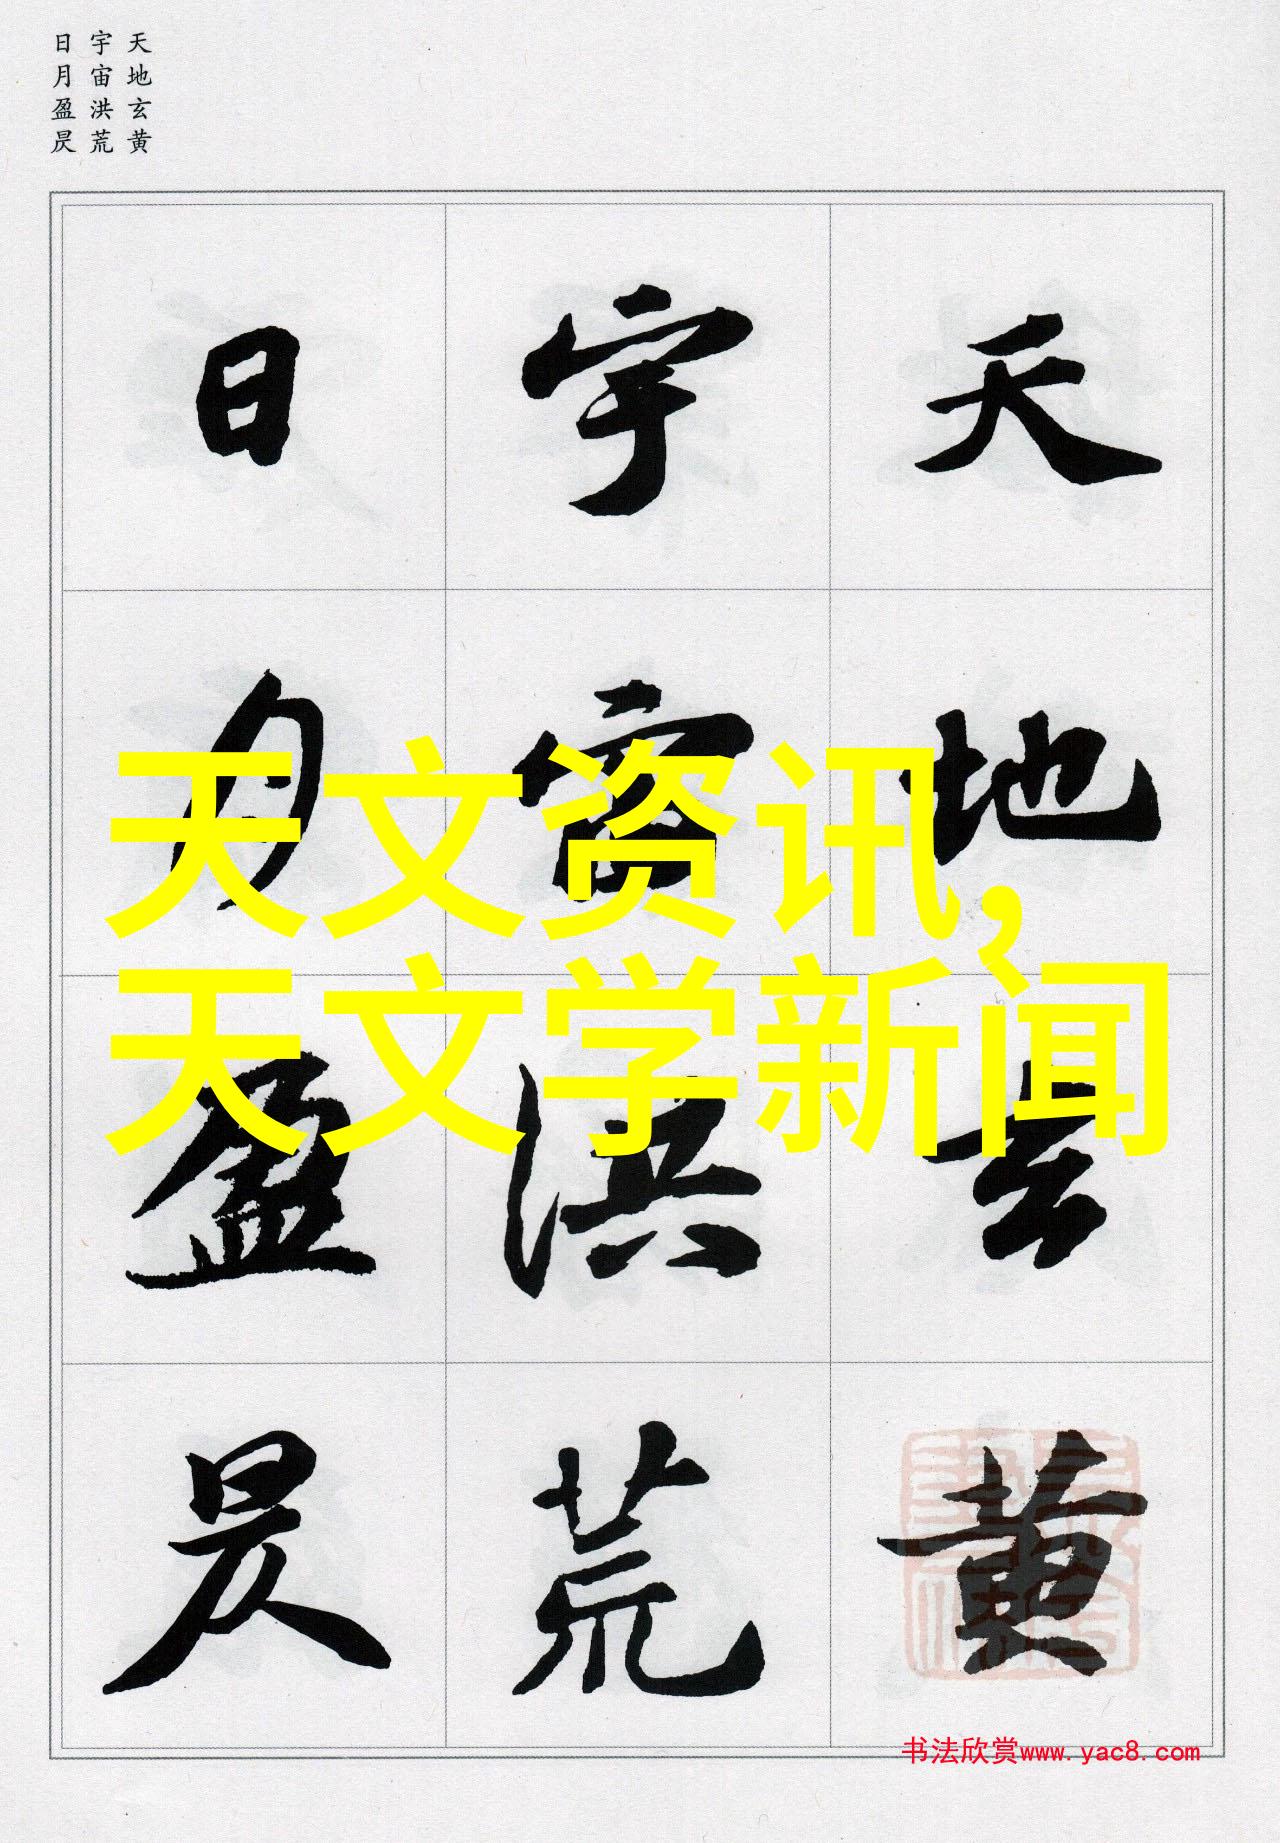 天地玄黄
宇宙洪荒
日月盈昃
天地玄黄
宇宙洪荒
日月盈昃
天文资讯,
天文学新闻
书法欣赏www.yac8.com